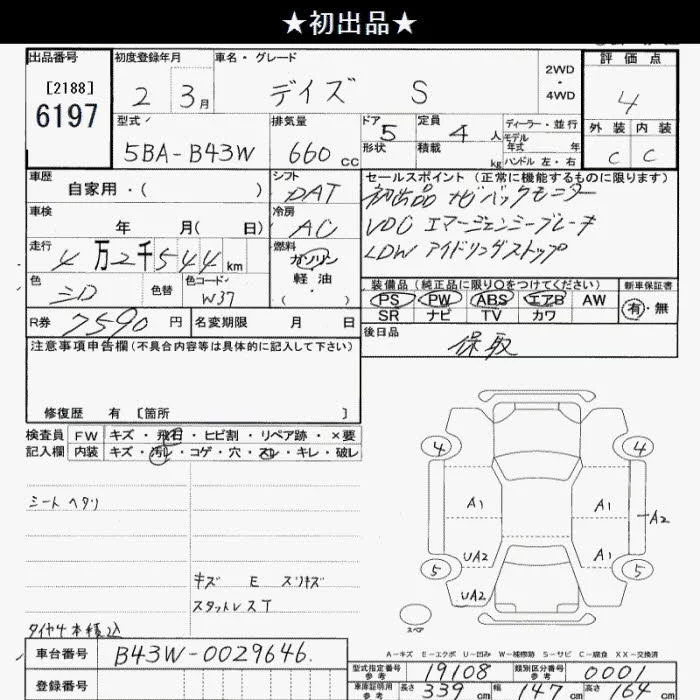 ★初出品★
出品番号 初度登録年月 車名・グレード 評価点
[2188] 6197 2 3月 デイズ S 2WD・4WD 4
型式 排気量 ドア 5 定員 4人 ディーラー・並行 外装 内装
5BA-B43W 660cc 形状 積載 kg モデル年式 年 C C
ハンドル 左・右
車歴 シフト セールスポイント (正常に機能するものに限ります)
自家用・( ) DAT 初出品 ナビバックモニター
車検 冷房 VDC エマージェンシーブレーキ
年 月( 日) AC LDW アイドリングストップ
走行 燃料
4万2千544km ガソリン
色 色替 色コード 軽油 装備品 (純正品に限り○をつけてください) 新車保証書
シロ W37 ・( ) PS PW ABS エアB AW 有・無
SR ナビ TV カワ
R券 7590円 名変期限 月 日 後日品
注意事項申告欄(不具合内容等は具体的に記入して下さい) 保取
修復歴 有 [箇所 ]
検査員 FW キズ・飛石・ヒビ割・リペア跡・×要
記入欄 内装 キズ・汚レ・コゲ・穴・スレ・キレ・破レ
4 4
シート ヘタリ A1 A1 A2
UA2 A1
キズ E スリキズ 5 5
スタットレスT UA2
タイヤ4本積込 スペア
A-キズ E-エクボ U-凹み W-補修跡 S-サビ C-腐食 XX-交換済
車台番号 B43W-0029646. 型式指定番号 参考 19108 類別区分番号 参考 0001
登録番号 車庫証明用 参考 長さ 339cm 幅 147cm 高さ 164cm